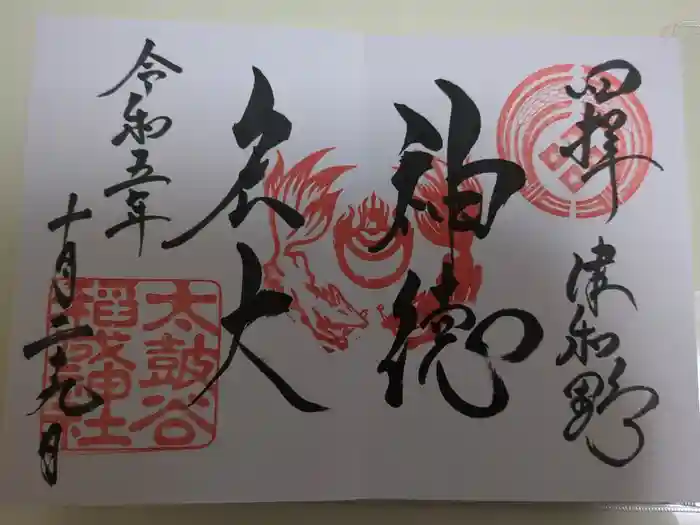 四拝
津和野
神徳
宏大
令和五年
十月二十九日
太皷谷
稲成神社